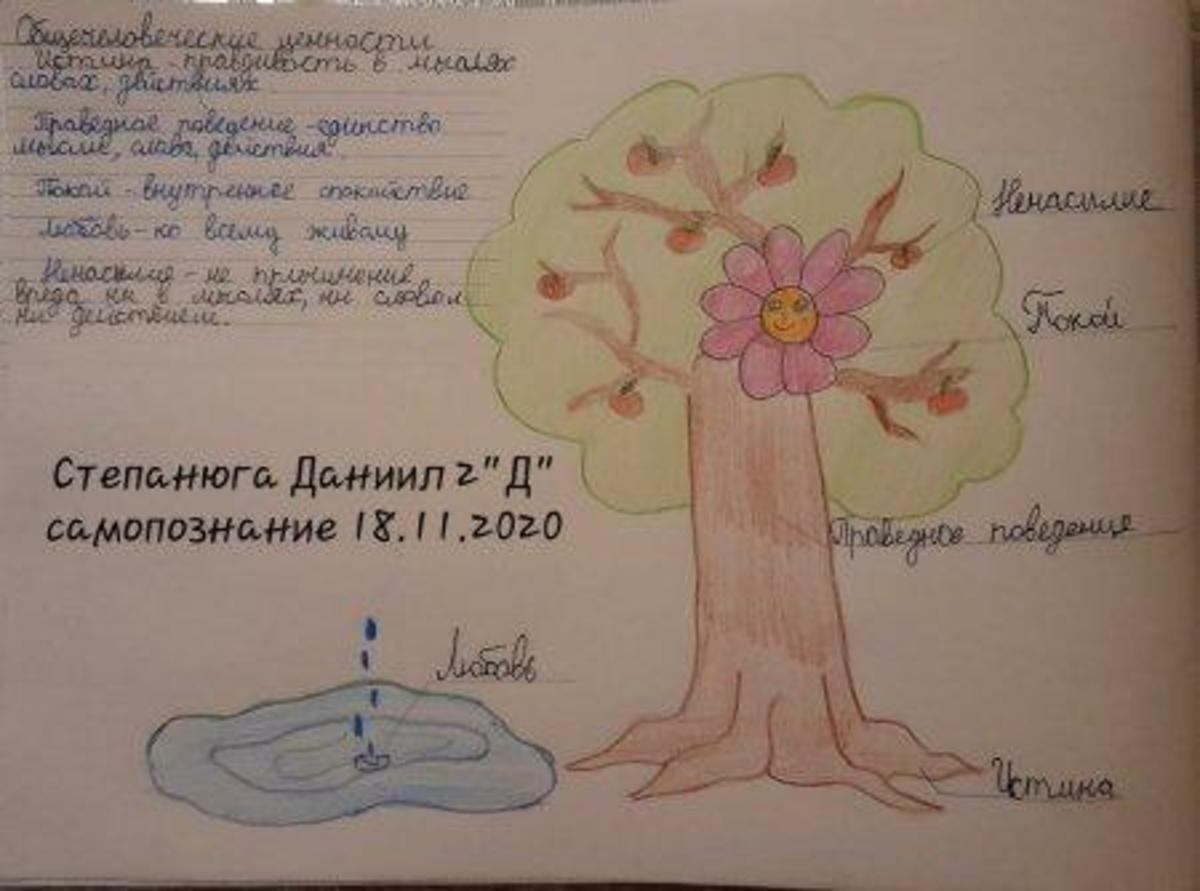 Общечеловеческие ценности
Истина - правдивость в мыслях
словах, действиях.
Праведное поведение - единство
мысли, слова, действия.
Покой - внутреннее спокойствие
Любовь - ко всему живому
Ненасилие - не причинение
вреда ни в мыслях, ни словом
ни действием.
Ненасилие
Покой
Степанюга Даниил 2"Д"
самопознание 18.11.2020
Праведное поведение
Любовь
Истина